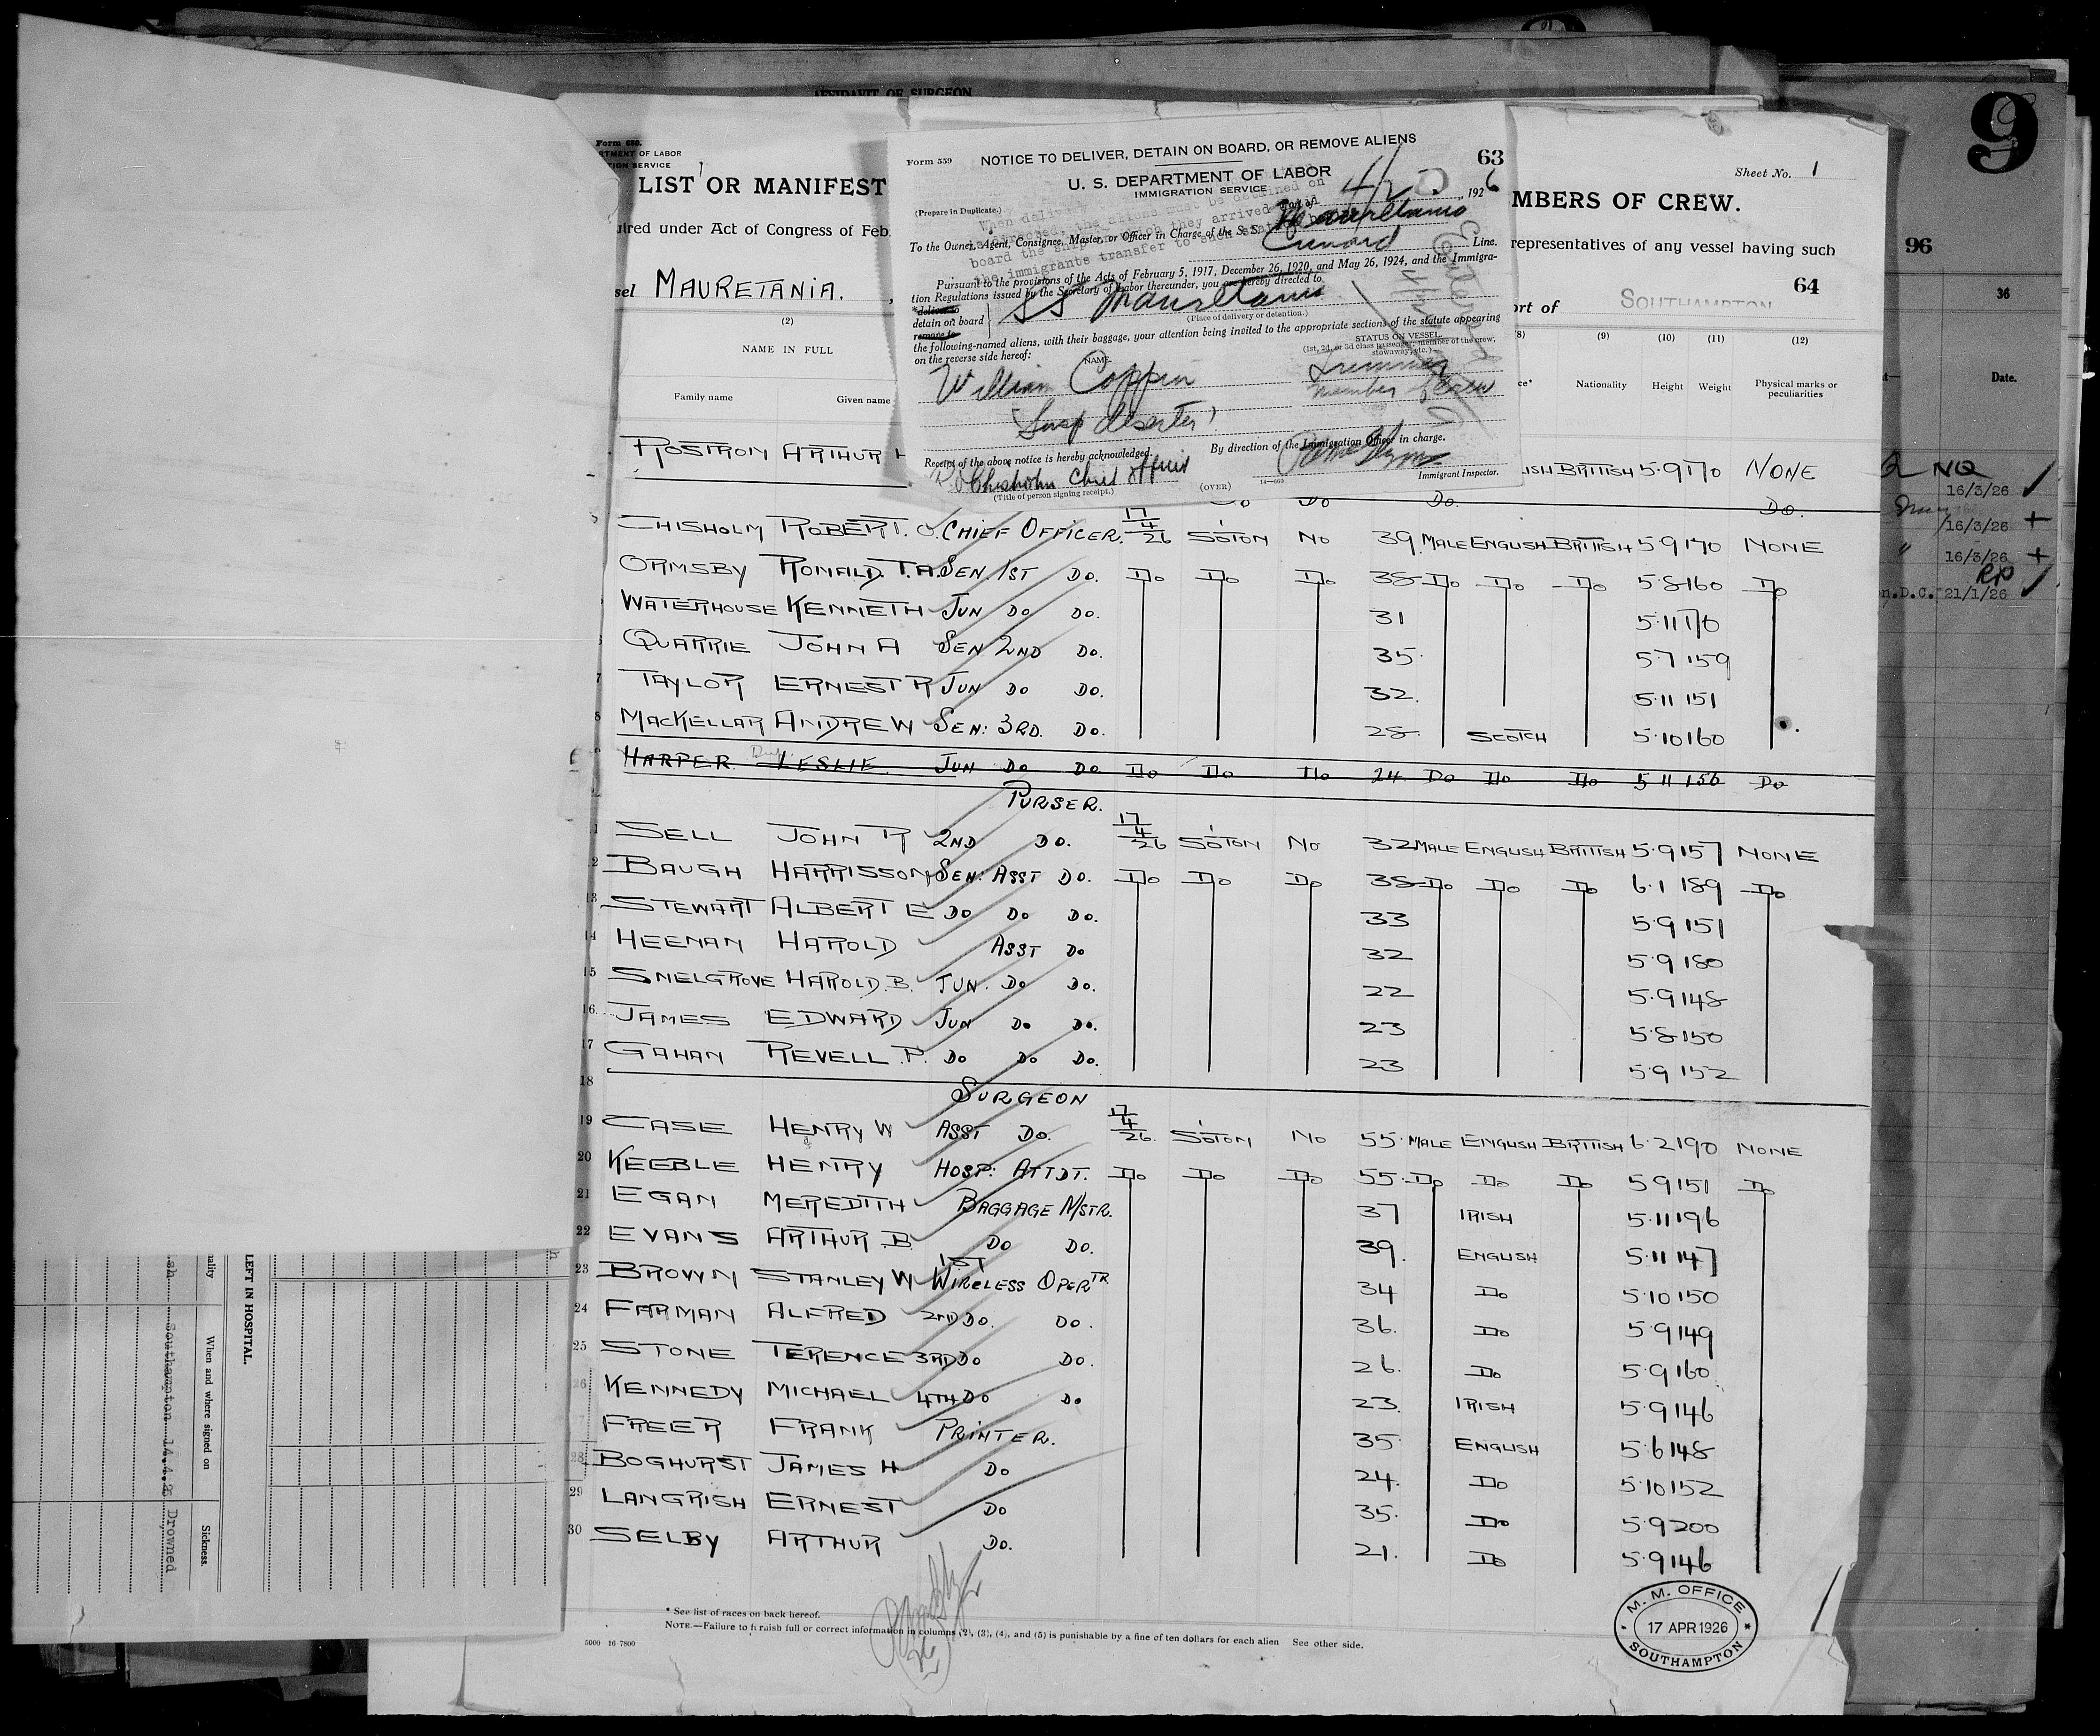 AFFIDAVIT OF SURGEON
9
96
36
Date.
NQ
16/3/26
16/3/26
" 16/3/26
RP
n.D.C. 21/1/26
Form 680.
RTMENT OF LABOR
TION SERVICE
LIST OR MANIFEST
MBERS OF CREW.
Sheet No. 1
uired under Act of Congress of Feb.
representatives of any vessel having such
64
sel MAURETANIA.
ort of SOUTHAMPTON
(2)
(8) (9) (10) (11) (12)
NAME IN FULL
Family name Given name
Nationality Height Weight Physical marks or peculiarities
Form 559
NOTICE TO DELIVER, DETAIN ON BOARD, OR REMOVE ALIENS
63
U. S. DEPARTMENT OF LABOR
IMMIGRATION SERVICE
(Prepare in Duplicate.)
4/2 , 1926
To the Owner, Agent, Consignee, Master, or Officer in Charge of the S. S. Mauretania
Cunard Line.
Pursuant to the provisions of the Acts of February 5, 1917, December 26, 1920, and May 26, 1924, and the Immigra-
tion Regulations issued by the Secretary of Labor thereunder, you are hereby directed to
*deliver to
detain on board SS Mauretania
remove to
(Place of delivery or detention.)
the following-named aliens, with their baggage, your attention being invited to the appropriate sections of the statute appearing
on the reverse side hereof:
STATUS ON VESSEL.
(1st, 2d, or 3d class passenger, member of the crew, stowaway, etc.)
NAME.
William Coppin Trimmer
member of Crew
Susp deserter
By direction of the Immigration Officer in charge.
Receipt of the above notice is hereby acknowledged.
Chisholm Chief Officer
Immigrant Inspector.
(Title of person signing receipt.)
(OVER)
14—693
ROSTRON ARTHUR H ISH BRITISH 5.9 170 NONE
Do Do Do. Do.
CHISHOLM ROBERT. O. CHIEF OFFICER. 17/4/26 S'OTON NO 39 MALE ENGLISH BRITISH 5.9 170 NONE
ORMSBY RONALD. T.A. SEN. 1ST DO. Do Do Do 38 Do Do Do 5.8 160 Do
WATERHOUSE KENNETH JUN DO DO. 31 5.11 176
QUARRIE JOHN A SEN 2ND DO. 35. 5.7 159
TAYLOR ERNEST R JUN DO DO. 32. 5.11 151
MACKELLAR ANDREW SEN: 3RD. DO. 28 SCOTCH 5.10 160
HARPER LESLIE. JUN DO DO Do Do Do 24. Do Do Do 5 11 156 Do
PURSER.
SELL JOHN R 2ND DO. 17/4/26 S'OTON NO 32 MALE ENGLISH BRITISH 5.9 157 NONE
12 BAUGH HARRISSON SEN: ASST DO. Do Do Do 38 Do Do Do 6.1 189 Do
13 STEWART ALBERT E DO DO DO. 33 5.9 151
14 HEENAN HAROLD ASST DO 32 5.9 180
15 SNELGROVE HAROLD. B. JUN. DO DO. 22 5.9 148
16 JAMES EDWARD JUN DO DO. 23 5.8 150
17 GAHAN REVELL .P. DO DO DO. 23 5.9 152
18 SURGEON
19 CASE HENRY W ASST DO. 17/4/26. S'OTON NO 55. MALE ENGLISH BRITISH 6.2 190 NONE
20 KEEBLE HENRY HOSP: ATTDT. Do Do Do 55. Do Do Do 5.9 151 Do
21 EGAN MEREDITH BAGGAGE M/STR. 37 IRISH 5.11 196
22 EVANS ARTHUR B. DO DO. 39. ENGLISH 5.11 147
23 BROWN STANLEY W 1ST WIRELESS OPERTR 34 Do 5.10 150
24 FARMAN ALFRED 2ND DO. DO. 36. Do 5.9 149
25 STONE TERENCE 3RD DO DO. 26. Do 5.9 160
26 KENNEDY MICHAEL 4TH DO DO 23. IRISH 5.9 146
27 FREER FRANK PRINTER. 35. ENGLISH 5.6 148
28 BOGHURST JAMES H DO 24. Do 5.10 152
29 LANGRISH ERNEST DO 35. Do 5.9 200
30 SELBY ARTHUR DO. 21. Do 5.9 146
* See list of races on back hereof.
NOTE.—Failure to furnish full or correct information in columns (2), (3), (4), and (5) is punishable by a fine of ten dollars for each alien See other side.
5000 16 7800
M. M. OFFICE
17 APR 1926
SOUTHAMPTON
LEFT IN HOSPITAL.
When and where signed on
Sickness.
Southampton 14.4.2
Drowned